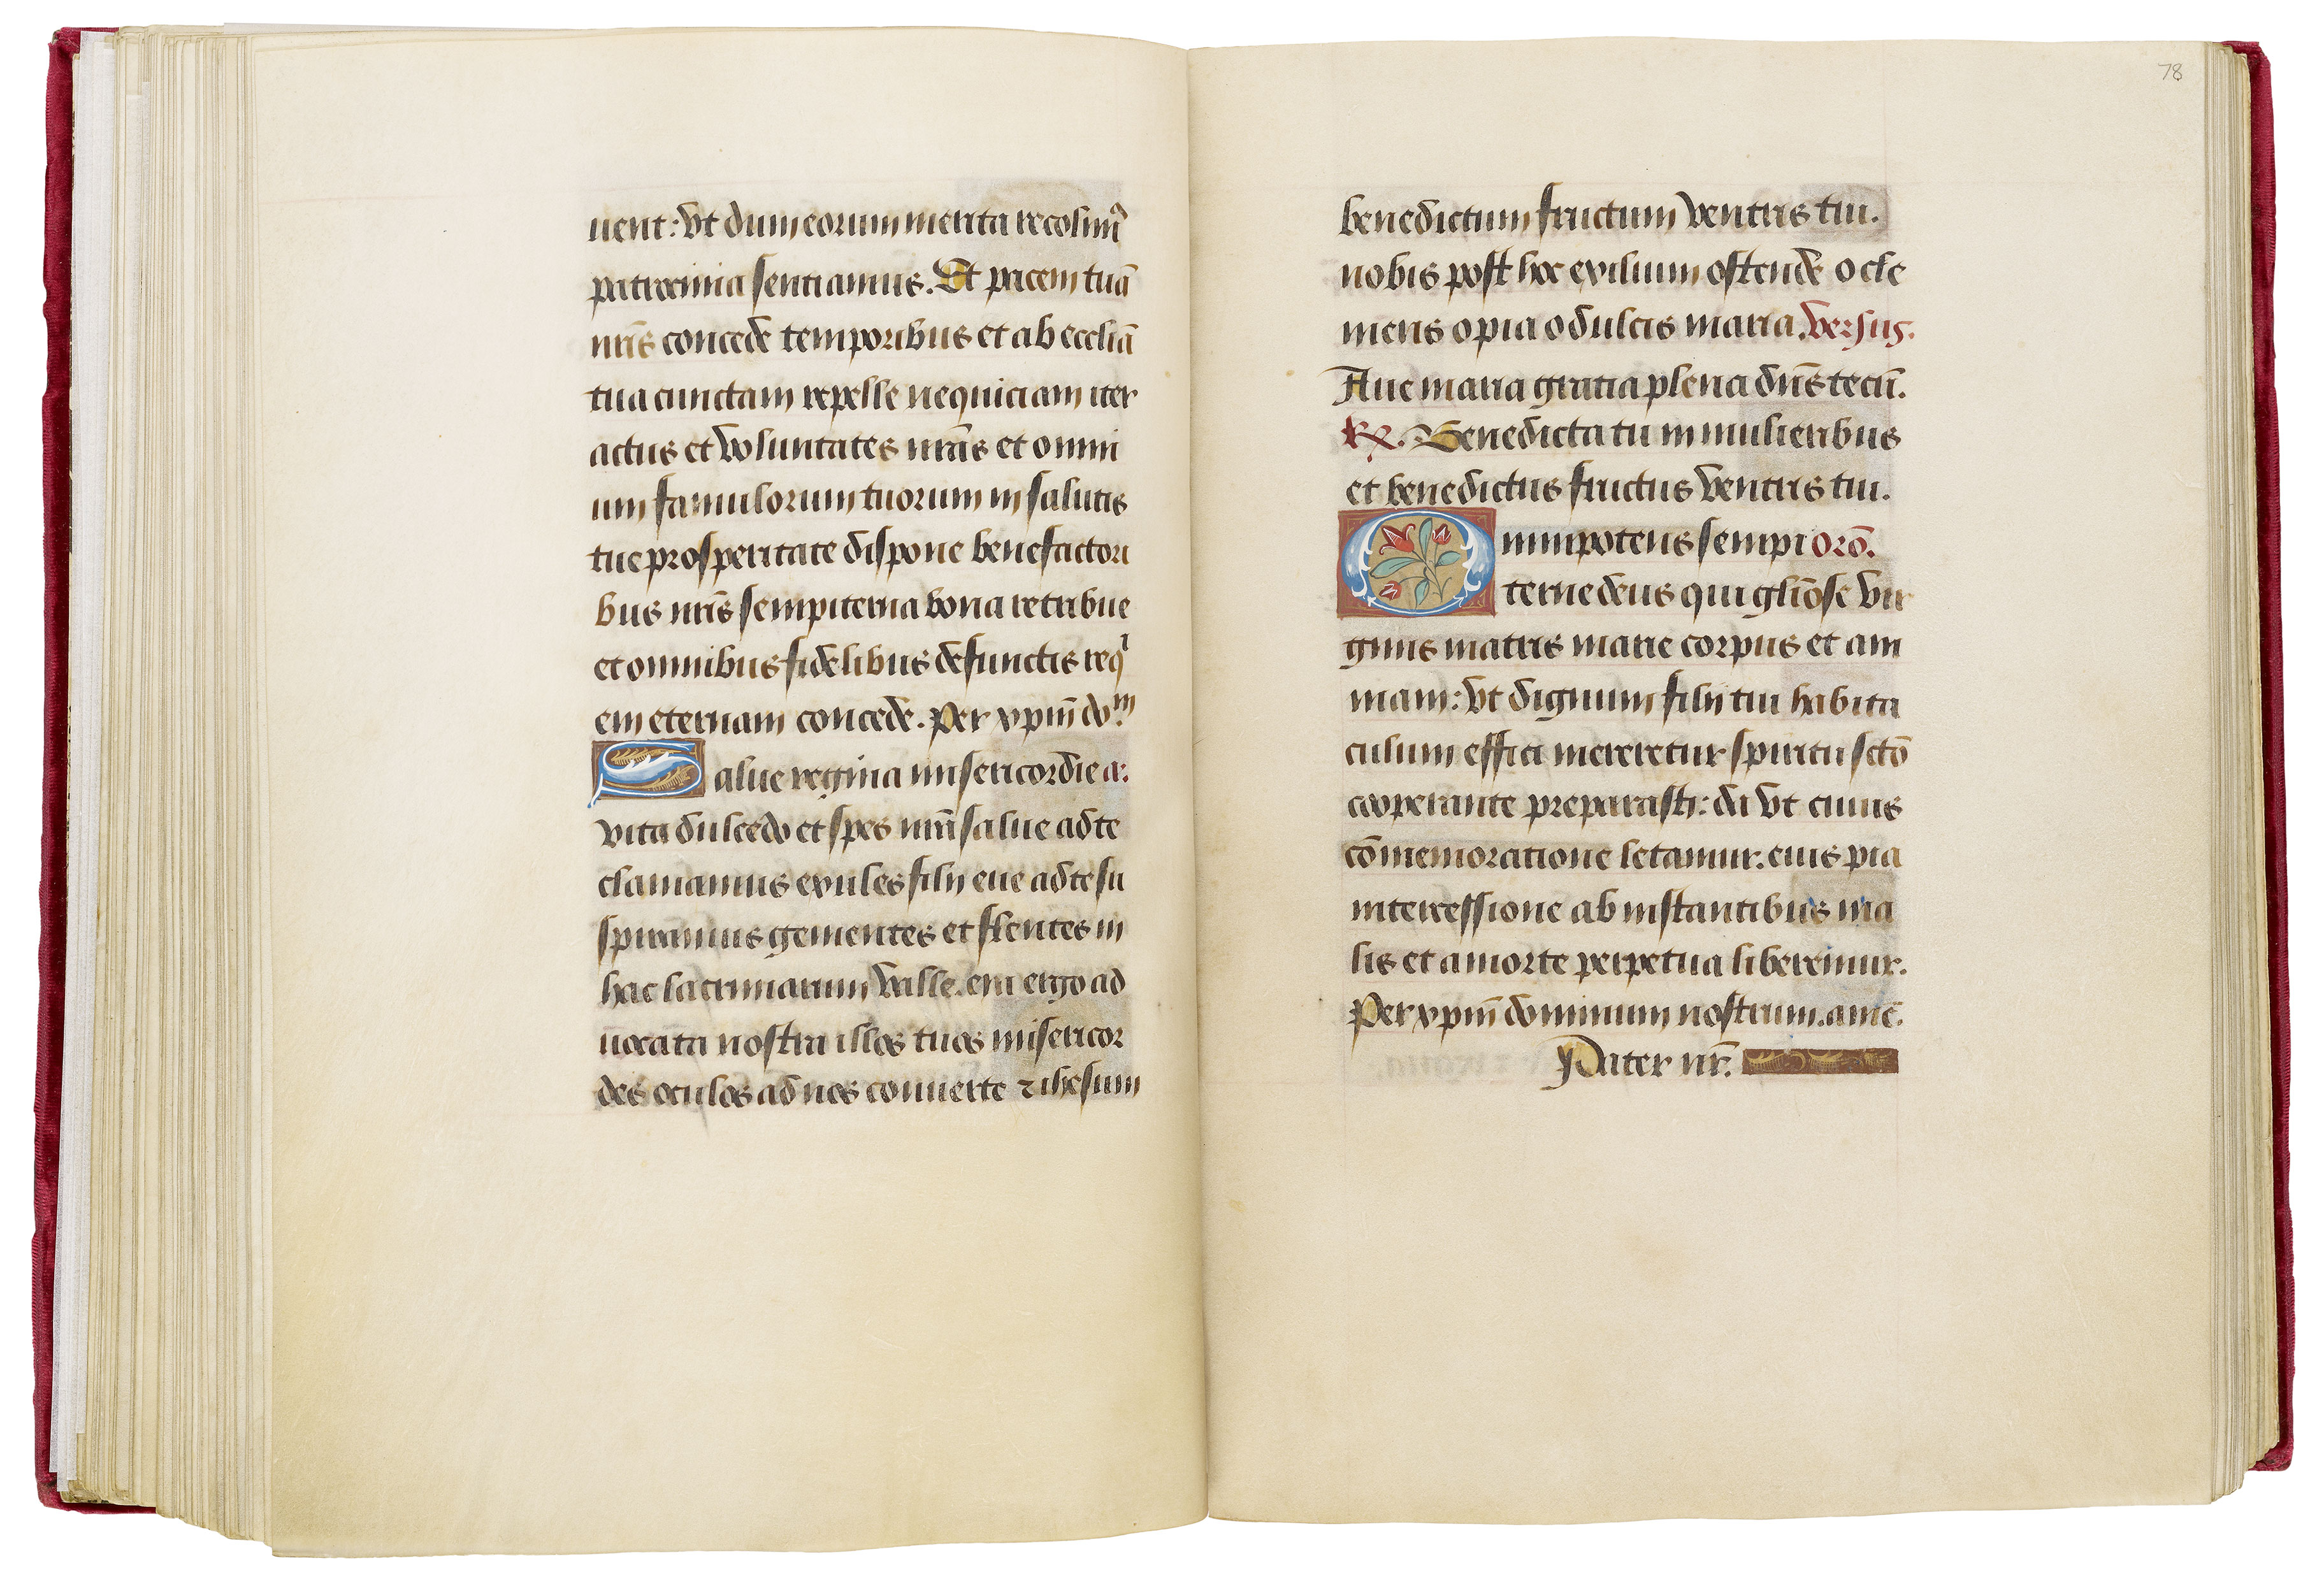 uent: vt dum eorum merita recolimꝰ
patrocinia sentiamus. Et pacem tuã
nr̃is concede temporibus et ab ecclĩa
tua cunctam repelle nequiciam iter
actus et voluntates nr̃as et omni
um famulorum tuorum in salutis
tue prosperitate dispone benefactori
bus nr̃is sempiterna bona retribue
et omnibus fidelibus defunctis reqⁱ
em eternam concede. Per xp̃m doᵐ.
Salue regina misericordie a:
vita dulcedo et spes nr̃a salue ad te
clamamus exules filij eue ad te su
spiramus gementes et flentes in
hac lacrimarum valle. eia ergo ad
uocata nostra illos tuos misericor
des oculos ad nos conuerte ⁊ ihesum
78
benedictum fructum ventris tui.
nobis post hoc exilium ostende o cle
mens o pia o dulcis maria. versus.
Aue maria gratia plena dñs tecũ.
R̷. Benedicta tu in mulieribus
et benedictus fructus ventris tui.
Omnipotens sempi orõ.
terne deus qui glĩose vir
ginis matris marie corpus et ani
mam: vt dignum filij tui habita
culum effici mereretur spiritu sctõ
cooperante preparasti: da vt cuius
cõmemoratione letamur. eius pia
intercessione ab instantibus ma
lis et a morte perpetua liberemur.
Per xp̃m dominum nostrum. amẽ.
Pater nr̃.